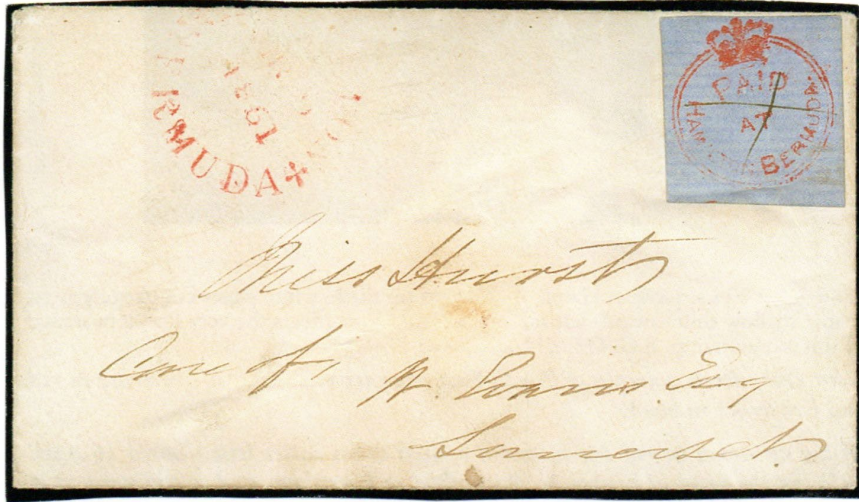 1861
RMUDA
PAID
AT
HAMILTON BERMUDA
Miss Hurst
Care of, W. Evans Esq
Somerset